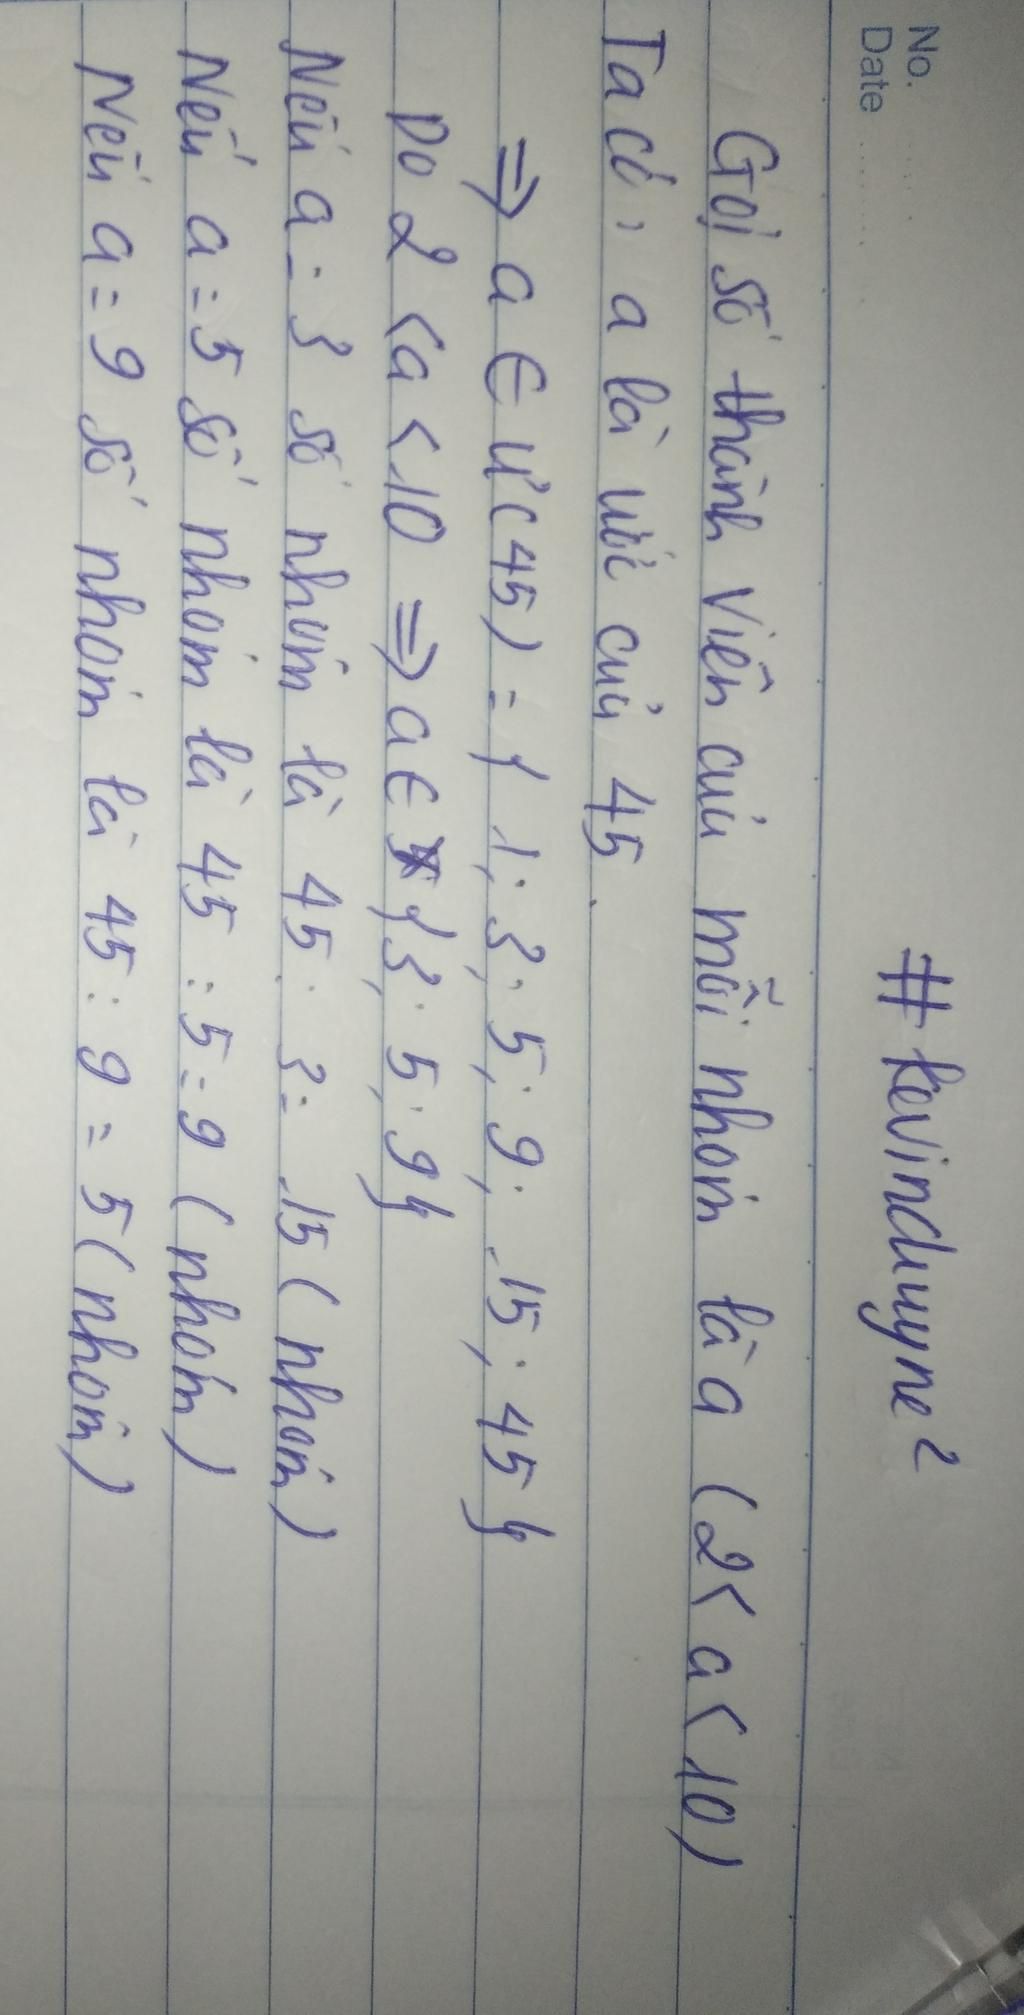 No.
Date
# kevinduyne²
Gọi số thành viên của mỗi nhóm là a (2 < a < 10)
Ta có: a là ước của 45.
=> a ∈ Ư(45) = { 1; 3; 5; 9; 15; 45 }
Do 2 < a < 10 => a ∈ { 3; 5; 9 }
Nếu a = 3 số nhóm là 45 : 3 = 15 ( nhóm )
Nếu a = 5 số nhóm là 45 : 5 = 9 ( nhóm )
Nếu a = 9 số nhóm là 45 : 9 = 5 ( nhóm )